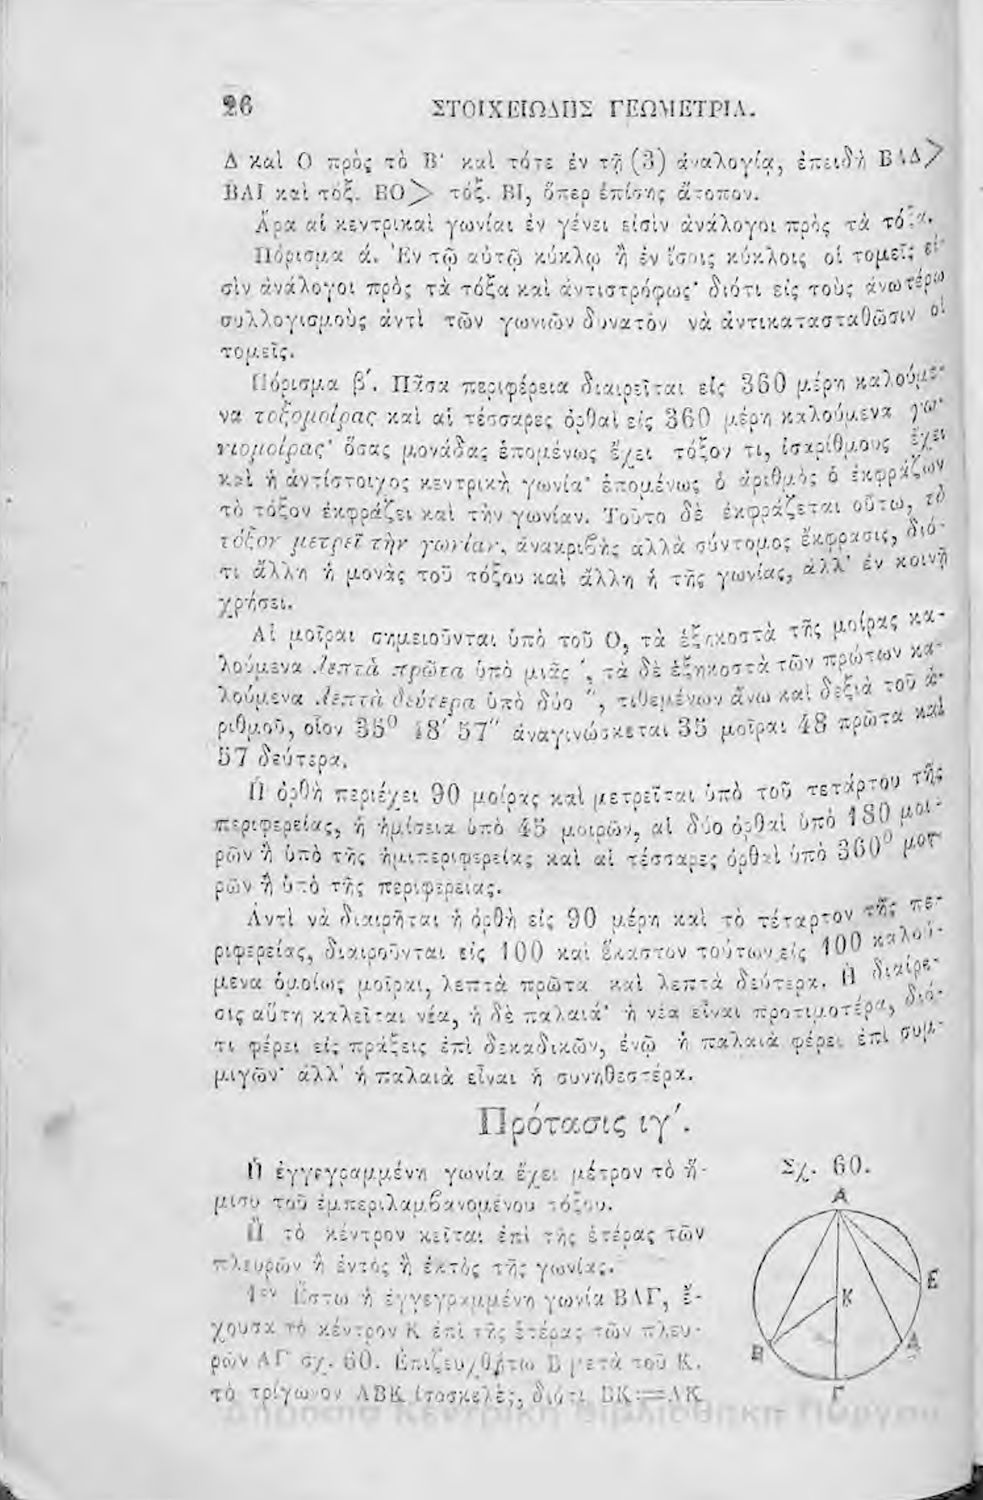 26 ΣΤΟΙΧΕΙΩΔΗΣ ΓΕΩΜΕΤΡΙΑ.
Δ καὶ Ο πρὸς τὸ Β· καὶ τότε ἐν τῇ (3) ἀναλογίᾳ, ἐπειδὴ ΒΑΔ>
ΒΑΙ καὶ τόξ. ΒΟ> τόξ. ΒΙ, ὅπερ ἐπίσης ἄτοπον.
Ἄρα αἱ κεντρικαὶ γωνίαι ἐν γένει εἰσὶν ἀνάλογοι πρὸς τὰ τόξα.
Πόρισμα ά. Ἐν τῷ αὐτῷ κύκλῳ ἢ ἐν ἴσοις κύκλοις οἱ τομεῖς εἰ-
σὶν ἀνάλογοι πρὸς τὰ τόξα καὶ ἀντιστρόφως· διότι εἰς τοὺς ἀνωτέρω
συλλογισμοὺς ἀντὶ τῶν γωνιῶν δυνατὸν νὰ ἀντικατασταθῶσιν οἱ
τομεῖς.
Πόρισμα β΄. Πᾶσα περιφέρεια διαιρεῖται εἰς 360 μέρη καλούμε-
να τοξομοίρας καὶ αἱ τέσσαρες ὀρθαὶ εἰς 360 μέρη καλούμενα γω-
νιομοίρας· ὅσας μονάδας ἑπομένως ἔχει τόξον τι, ἰσαρίθμους ἔχει
καὶ ἡ ἀντίστοιχος κεντρικὴ γωνία· ἑπομένως ὁ ἀριθμὸς ὁ ἐκφράζων
τὸ τόξον ἐκφράζει καὶ τὴν γωνίαν. Τοῦτο δὲ ἐκφράζεται οὕτω, τὸ
τόξον μετρεῖ τὴν γωνίαν, ἀνακριβὴς ἀλλὰ σύντομος ἔκφρασις, διό-
τι ἄλλη ἡ μονὰς τοῦ τόξου καὶ ἄλλη ἡ τῆς γωνίας, ἀλλ' ἐν κοινῇ
χρήσει.
Αἱ μοῖραι σημειοῦνται ὑπὸ τοῦ Ο, τὰ ἑξηκοστὰ τῆς μοίρας κα-
λούμενα λεπτὰ πρῶτα ὑπὸ μιᾶς ', τὰ δὲ ἑξηκοστὰ τῶν πρώτων κα-
λούμενα λεπτὰ δεύτερα ὑπὸ δύο '', τιθεμένων ἄνω καὶ δεξιὰ τοῦ ἀ-
ριθμοῦ, οἷον 35⁰ 48' 57'' ἀναγινώσκεται 35 μοῖραι 48 πρῶτα καὶ
57 δεύτερα.
Ἡ ὀρθὴ περιέχει 90 μοίρας καὶ μετρεῖται ὑπὸ τοῦ τετάρτου τῆς
περιφερείας, ἡ ἡμίσεια ὑπὸ 45 μοιρῶν, αἱ δύο ὀρθαὶ ὑπὸ 180 μοι-
ρῶν ἢ ὑπὸ τῆς ἡμιπεριφερείας καὶ αἱ τέσσαρες ὀρθαὶ ὑπὸ 360⁰ μοι-
ρῶν ἢ ὑπὸ τῆς περιφερείας.
Ἀντὶ νὰ διαιρῆται ἡ ὀρθὴ εἰς 90 μέρη καὶ τὸ τέταρτον τῆς πε-
ριφερείας, διαιροῦνται εἰς 100 καὶ ἕκαστον τούτων εἰς 100 καλού-
μενα ὁμοίως μοῖραι, λεπτὰ πρῶτα καὶ λεπτὰ δεύτερα. Ἡ διαίρε-
σις αὕτη καλεῖται νέα, ἡ δὲ παλαιά· ἡ νέα εἶναι προτιμοτέρα, διό-
τι φέρει εἰς πράξεις ἐπὶ δεκαδικῶν, ἐνῷ ἡ παλαιὰ φέρει ἐπὶ συμ-
μιγῶν· ἀλλ' ἡ παλαιὰ εἶναι ἡ συνηθεστέρα.
Πρότασις ιγ΄.
Ἡ ἐγγεγραμμένη γωνία ἔχει μέτρον τὸ ἥ-
μισυ τοῦ ἐμπεριλαμβανομένου τόξου.
Ἢ τὸ κέντρον κεῖται ἐπὶ τῆς ἑτέρας τῶν
πλευρῶν ἢ ἐντὸς ἢ ἐκτὸς τῆς γωνίας.
1ον Ἔστω ἡ ἐγγεγραμμένη γωνία ΒΑΓ, ἔ-
χουσα τὸ κέντρον Κ ἐπὶ τῆς ἑτέρας τῶν πλευ-
ρῶν ΑΓ σχ. 60. Ἐπιζευχθήτω Β μετὰ τοῦ Κ.
τὸ τρίγωνον ΑΒΚ ἰσοσκελὲς, διότι ΒΚ=ΑΚ
Σχ. 60.
Α
Ε
Κ
Β
Δ
Γ
Δημόσια Κεντρική Βιβλιοθήκη Πύργου